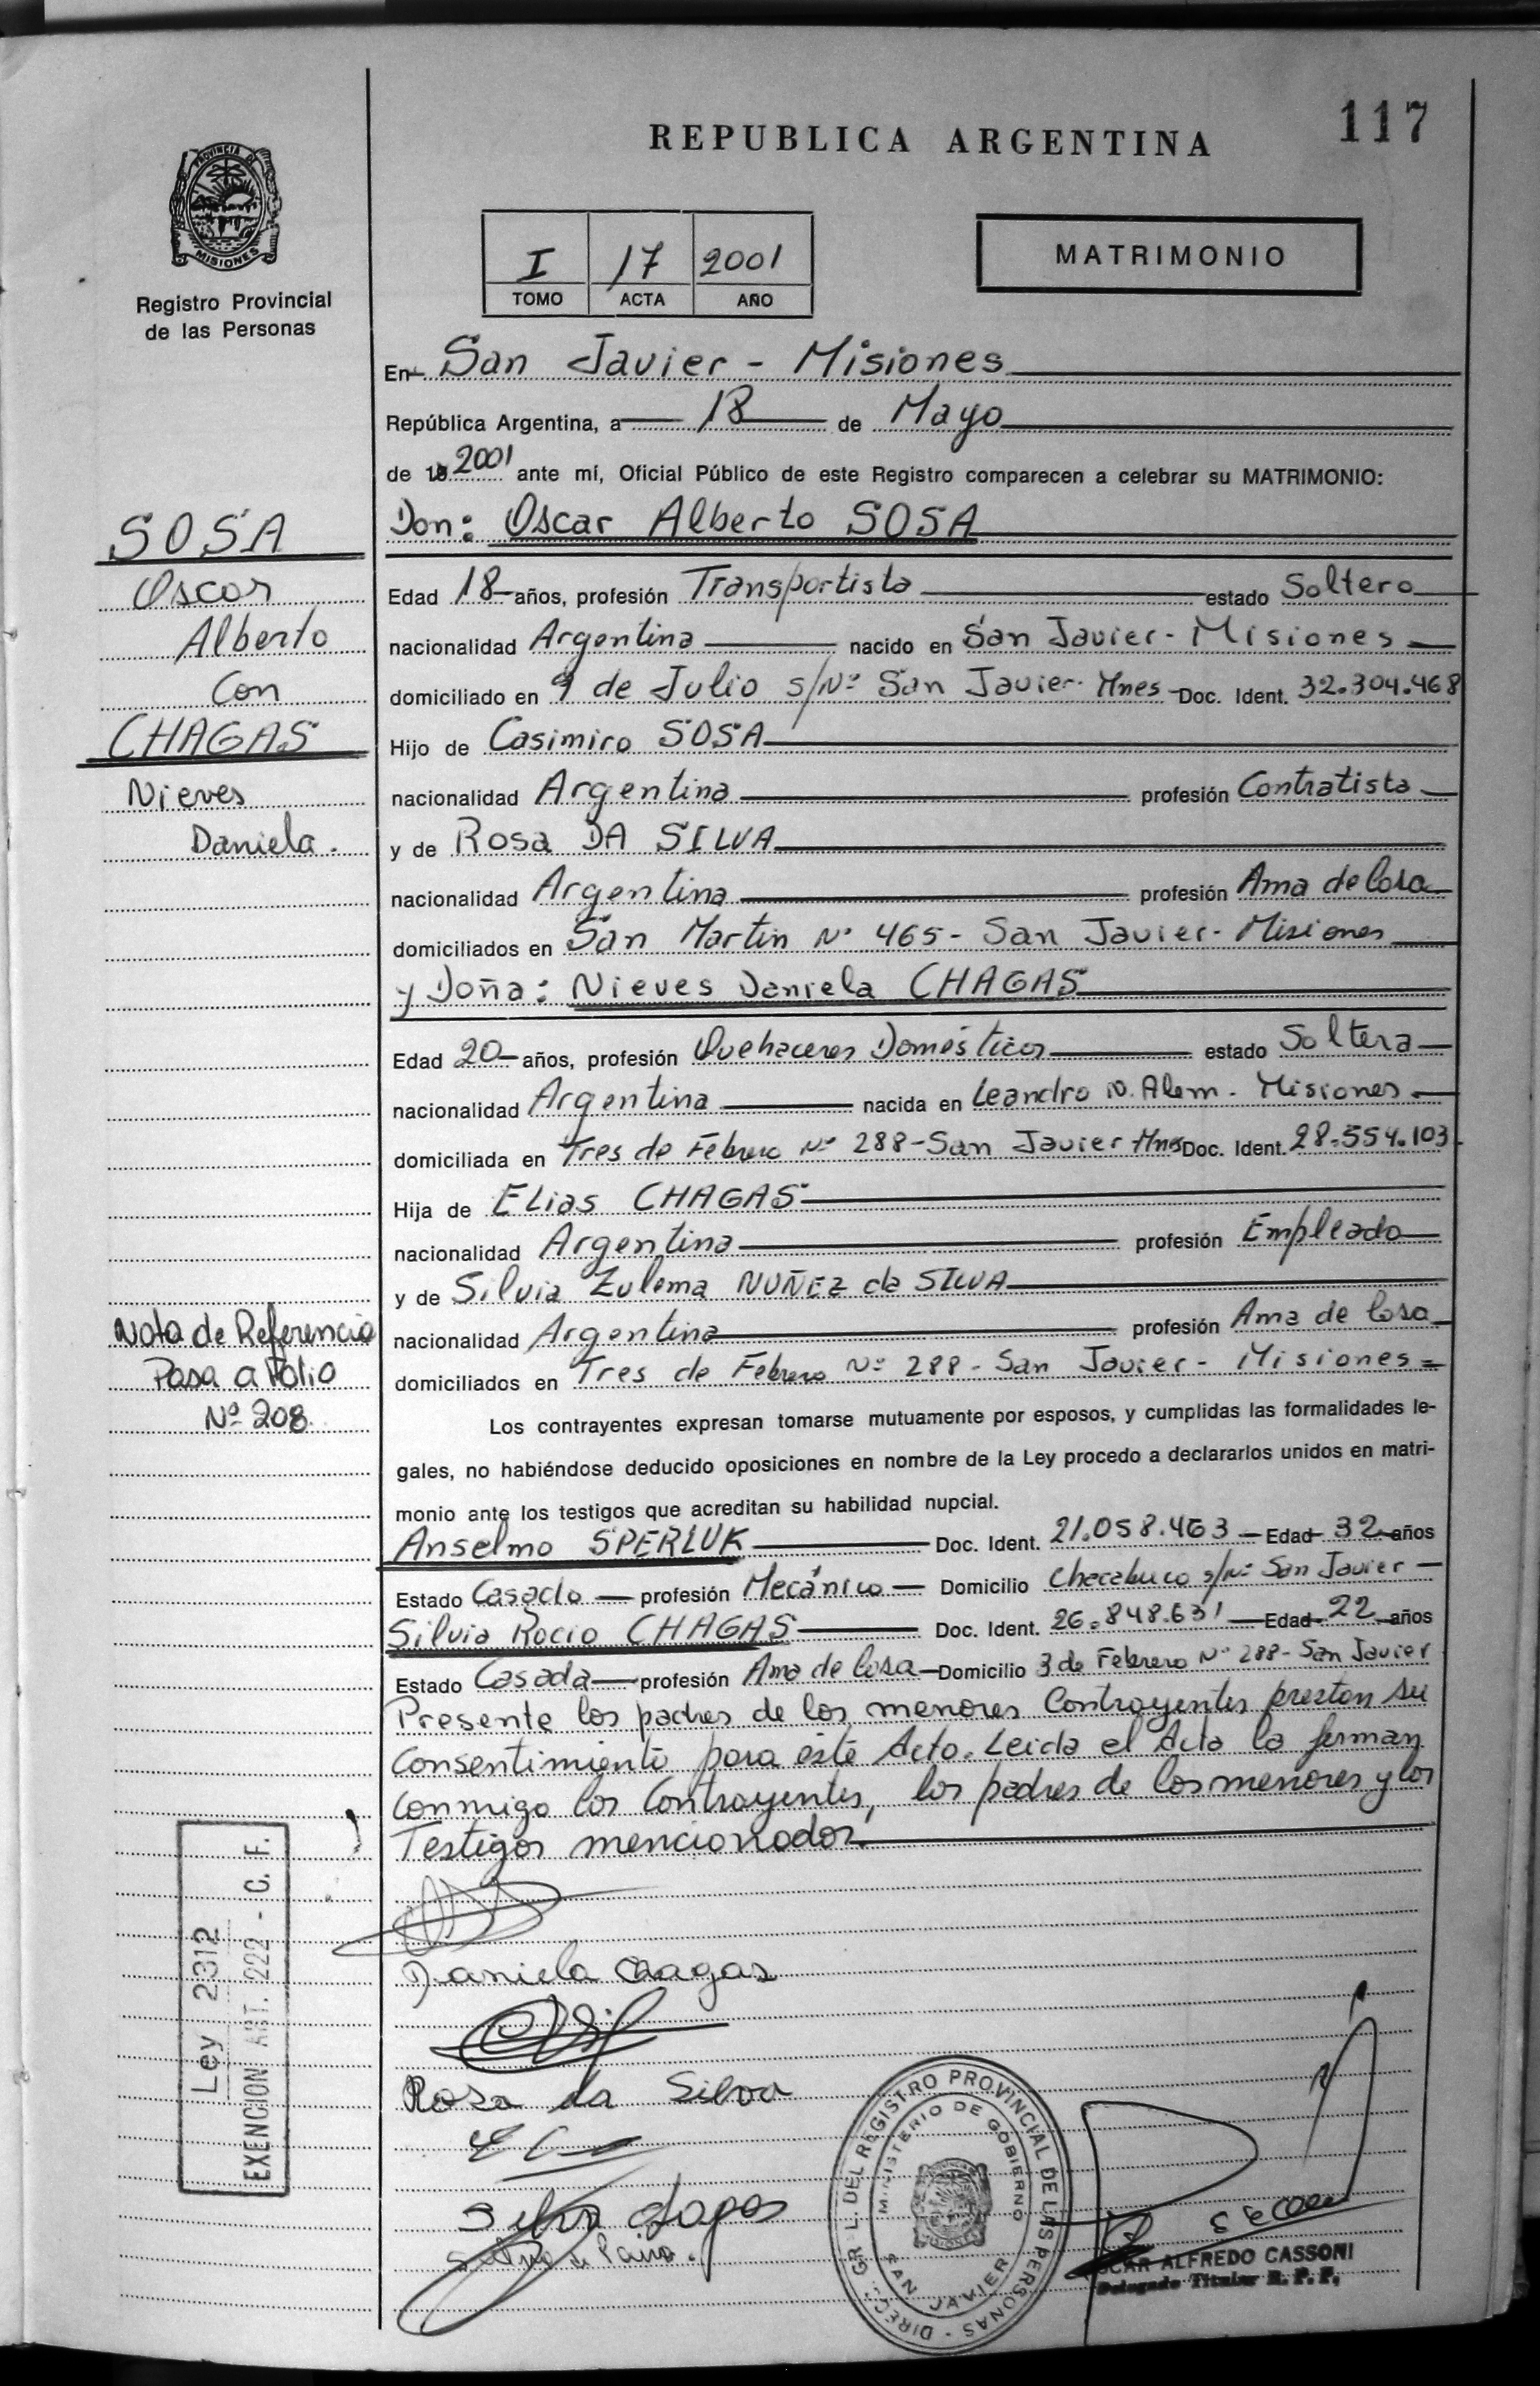 117
REPUBLICA ARGENTINA
PROVINCIA DE
MISIONES
Registro Provincial
de las Personas
I 17 2001
TOMO ACTA AÑO
MATRIMONIO
En San Javier - Misiones
República Argentina, a 18 de Mayo
de 19 2001 ante mí, Oficial Público de este Registro comparecen a celebrar su MATRIMONIO:
Don: Oscar Alberto SOSA
Edad 18 años, profesión Transportista estado Soltero
nacionalidad Argentina nacido en San Javier - Misiones
domiciliado en 9 de Julio s/Nº San Javier - Mnes Doc. Ident. 32.304.468
Hijo de Casimiro SOSA
nacionalidad Argentina profesión Contratista
y de Rosa DA SILVA
nacionalidad Argentina profesión Ama de Casa
domiciliados en San Martin Nº 465 - San Javier - Misiones
y Doña: Nieves Daniela CHAGAS
Edad 20 años, profesión Quehaceres Domésticos estado Soltera
nacionalidad Argentina nacida en Leandro N. Alem - Misiones
domiciliada en Tres de Febrero Nº 288 - San Javier Mnes Doc. Ident. 28.554.103
Hija de Elias CHAGAS
nacionalidad Argentina profesión Empleado
y de Silvia Zulema NUÑEZ da SILVA
nacionalidad Argentina profesión Ama de Casa
domiciliados en Tres de Febrero Nº 288 - San Javier - Misiones =
Los contrayentes expresan tomarse mutuamente por esposos, y cumplidas las formalidades le-
gales, no habiéndose deducido oposiciones en nombre de la Ley procedo a declararlos unidos en matri-
monio ante los testigos que acreditan su habilidad nupcial.
Anselmo SPERLUK Doc. Ident. 21.058.463 Edad 32 años
Estado Casado profesión Mecánico Domicilio Chacabuco s/Nº San Javier
Silvia Rocio CHAGAS Doc. Ident. 26.848.631 Edad 22 años
Estado Casada profesión Ama de Casa Domicilio 3 de Febrero Nº 288 - San Javier
Presente los padres de los menores Contrayentes prestan su
Consentimiento para este Acto. Leida el Acta la firman
conmigo los Contrayentes, los padres de los menores y los
Testigos mencionados.
SOSA
Oscar
Alberto
Con
CHAGAS
Nieves
Daniela.
Nota de Referencia
Pasa a Folio
Nº 208.
Ley 2312
EXENCION ART. 222 - C. F.
Daniela Chagas
Rosa da Silva
DIRECC. GRL. DEL REGISTRO PROVINCIAL DE LAS PERSONAS
MINISTERIO DE GOBIERNO
SAN JAVIER
ALFREDO CASSONI
Delegado Titular R. P. P.